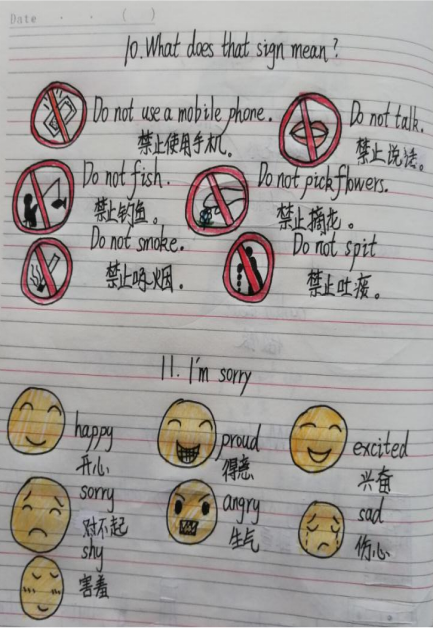 Date . . ( )
10. What does that sign mean?
Do not use a mobile phone.
禁止使用手机。
Do not talk.
禁止说话。
Do not fish.
禁止钓鱼。
Do not pick flowers.
禁止摘花。
Do not smoke.
禁止吸烟.
Do not spit
禁止吐痰。
11. I'm sorry
happy
开心
proud
得意
excited
兴奋
sorry
对不起
angry
生气
sad
伤心
shy
害羞